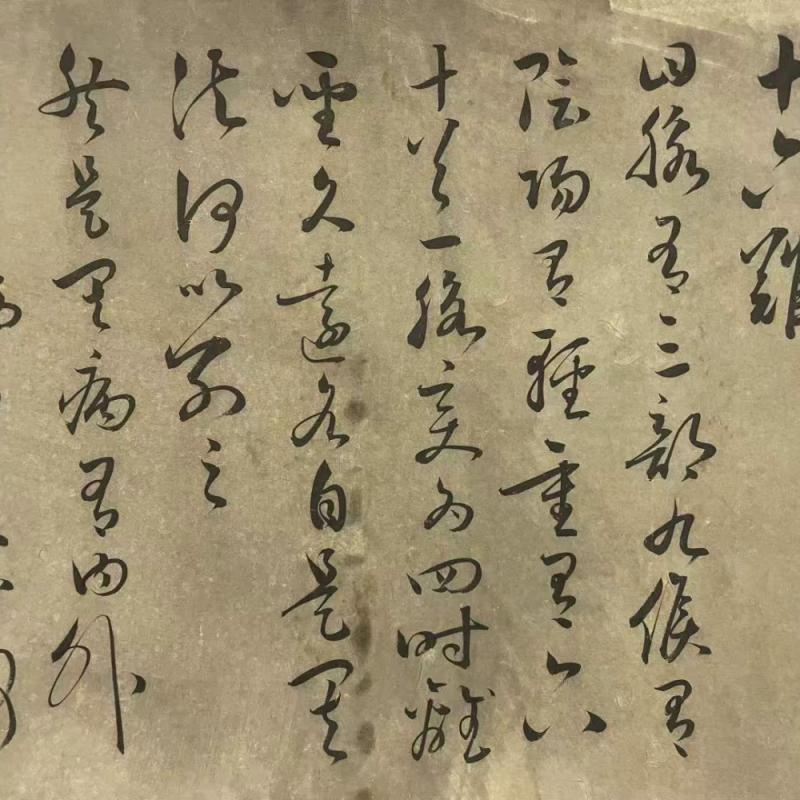 十六難
曰脉有三部九候有
陰陽有輕重有六
十首一脉變為四時離
聖久遠各自是其
法何以別之
然是其病有內外